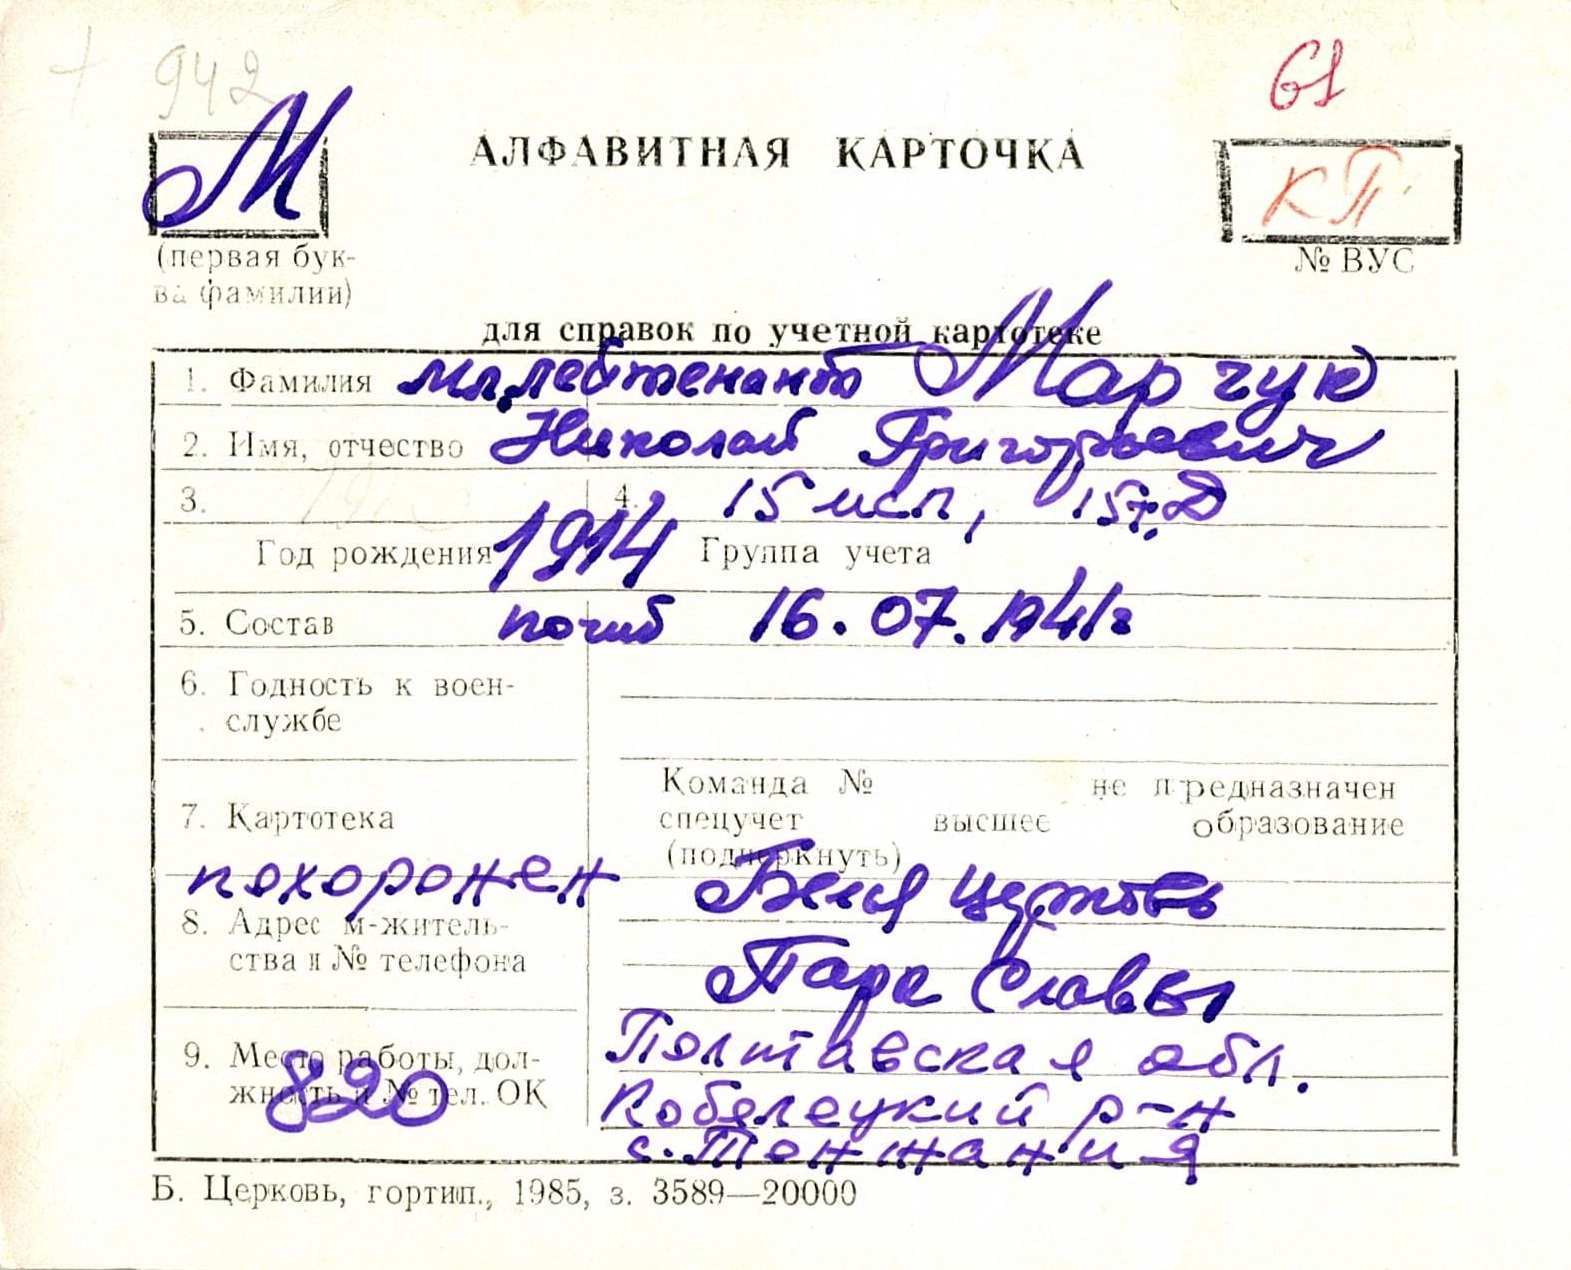 942
61
М
АЛФАВИТНАЯ КАРТОЧКА
КП
(первая бук-
ва фамилии)
№ ВУС
для справок по учетной картотеке
1. Фамилия мл. лейтенант Марчук
2. Имя, отчество Николай Григорьевич
3. 4. 15 мсп, 15 т.д
Год рождения 1914 Группа учета
5. Состав погиб 16.07.1941г
6. Годность к воен-
службе
Команда № не предназначен
7. Картотека спецучет высшее образование
(подчеркнуть)
похоронен Белая Церковь
8. Адрес м-житель-
ства и № телефона
Парк Славы
9. Место работы, дол- Полтавская обл.
жность и № тел. ОК 820 Кобеляцкий р-н
с.
Б. Церковь, гортип., 1985, з. 3589—20000